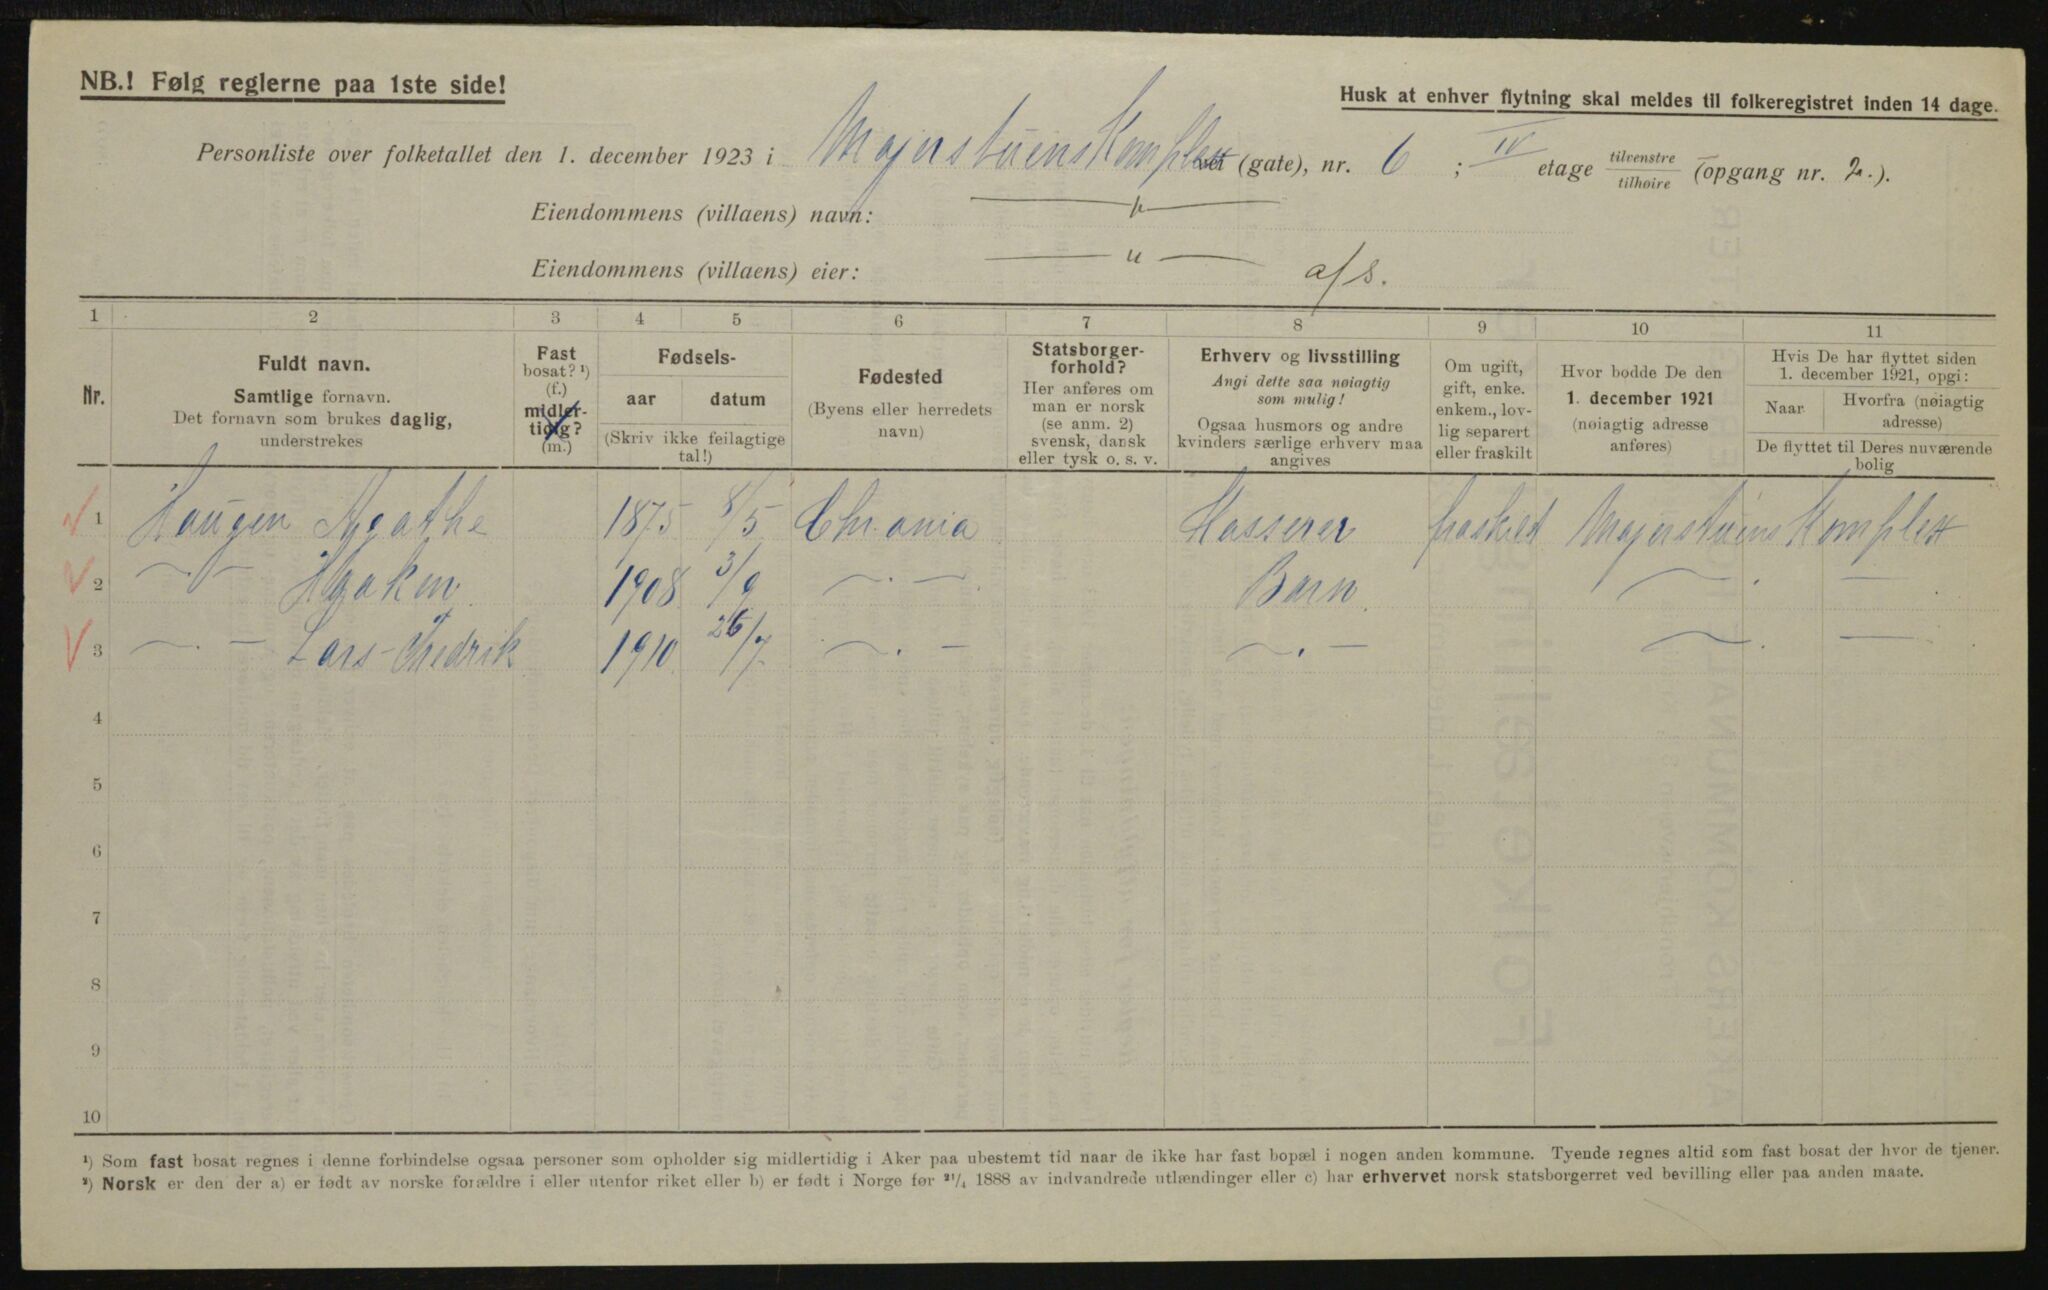 NB.! Følg reglerne paa 1ste side!
Husk at enhver flytning skal meldes til folkeregistret inden 14 dage.
Personliste over folketallet den 1. december 1923 i Majerstuens Komplex vei (gate), nr. 6 ; IV etage tilvenstre tilhøire (opgang nr. 2.).
Eiendommens (villaens) navn: — " —
Eiendommens (villaens) eier: — " — a/s.
1 2 3 4 5 6 7 8 9 10 11
Nr.
Fuldt navn.
Samtlige fornavn.
Det fornavn som brukes daglig,
understrekes
Fast
bosat? ¹)
(f.)
midler-
tidig?
(m.)
Fødsels-
aar datum
(Skriv ikke feilagtige
tal!)
Fødested
(Byens eller herredets
navn)
Statsborger-
forhold?
Her anføres om
man er norsk
(se anm. 2)
svensk, dansk
eller tysk o. s. v.
Erhverv og livsstilling
Angi dette saa nøiagtig
som mulig!
Ogsaa husmors og andre
kvinders særlige erhverv maa
angives
Om ugift,
gift, enke.
enkem., lov-
lig separert
eller fraskilt
Hvor bodde De den
1. december 1921
(nøiagtig adresse
anføres)
Hvis De har flyttet siden
1. december 1921, opgi:
Naar.
Hvorfra (nøiagtig
adresse)
De flyttet til Deres nuværende
bolig
1 Haugen Agathe 1875 8/5 Chr.ania Kasserer fraskilt Majerstuens Komplex
2 — " — Haakon 1908 3/9 — " — Barn. — " —
3 — " — Lars-Fredrik 1910 26/7 — " — — " — — " —
4
5
6
7
8
9
10
¹) Som fast bosat regnes i denne forbindelse ogsaa personer som opholder sig midlertidig i Aker paa ubestemt tid naar de ikke har fast bopæl i nogen anden kommune. Tyende regnes altid som fast bosat der hvor de tjener.
²) Norsk er den der a) er født av norske forældre i eller utenfor riket eller b) er født i Norge før ²¹/₄ 1888 av indvandrede utlændinger eller c) har erhvervet norsk statsborgerret ved bevilling eller paa anden maate.